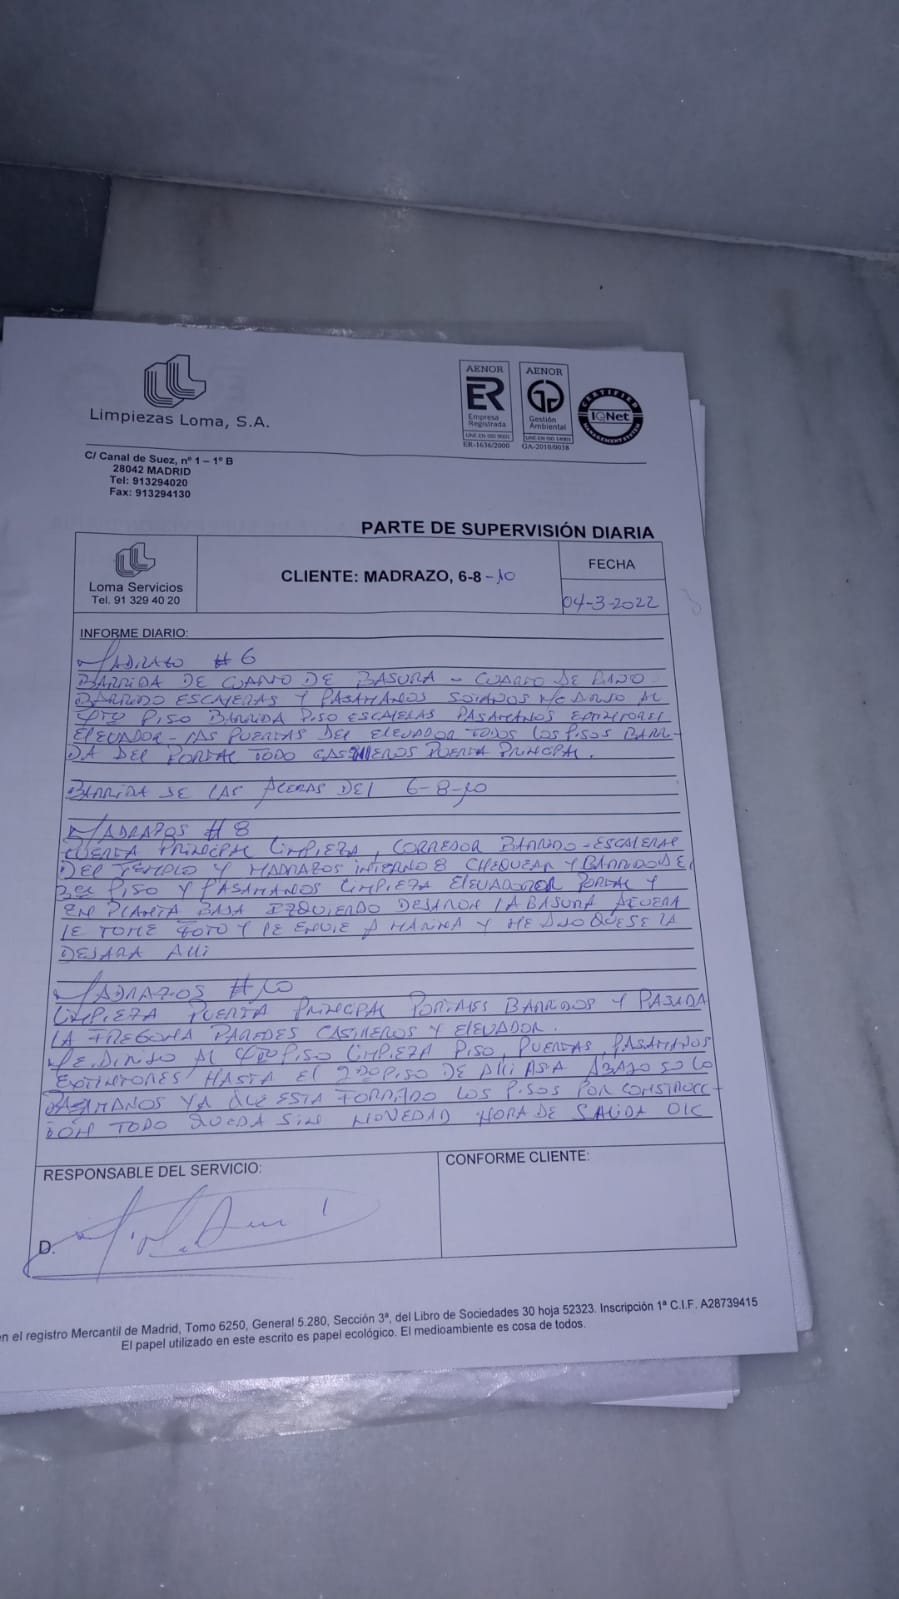 Limpiezas Loma, S.A.
AENOR
ER
Empresa
Registrada
UNE-EN ISO 9001
ER-1636/2000
AENOR
Gestión
Ambiental
UNE-EN ISO 14001
GA-2010/0038
CERTIFIED
IQNet
MANAGEMENT SYSTEM
C/ Canal de Suez, nº 1 – 1º B
28042 MADRID
Tel: 913294020
Fax: 913294130
PARTE DE SUPERVISIÓN DIARIA
Loma Servicios
Tel. 91 329 40 20
CLIENTE: MADRAZO, 6-8-10
FECHA
04-3-2022
INFORME DIARIO:
MADRAZO # 6
BARRIDA DE CUARTO DE BASURA - CUARTO DE BAÑO
BARRIDO ESCALERAS Y PASAMANOS SOTANOS ME DIRIJO AL
4TO PISO BARRIDA PISO ESCALERAS PASAMANOS EXTINTORES
ELEVADOR - LAS PUERTAS DEL ELEVADOR TODOS LOS PISOS BARRI-
DA DEL PORTAL TODO CASILLEROS PUERTA PRINCIPAL.
BARRIDA DE LAS ACERAS DEL 6-8-10
MADRAZOS # 8
PUERTA PRINCIPAL LIMPIEZA, CORREDOR BARRIDO - ESCALERAS
DEL TEMPLO Y MADRAZOS INTERNO 8 CHEQUEAR Y BARRIDO DEL
3ER PISO Y PASAMANOS LIMPIEZA ELEVADOR PORTAL Y
EN PLANTA BAJA IZQUIERDO DEJARON LA BASURA AFUERA
LE TOME FOTO Y LE ENVIE A HANNA Y ME DIJO QUE SE LA
DEJARA ALLI
MADRAZOS # 10
LIMPIEZA PUERTA PRINCIPAL PORTALES BARRIDOS Y PASADA
LA FREGONA PAREDES CASILLEROS Y ELEVADOR.
ME DIRIJO AL 4TO PISO LIMPIEZA PISO, PUERTAS, PASAMANOS
EXTINTORES HASTA EL 2DO PISO DE ALLI ASIA ABAJO SOLO
PASAMANOS YA QUE ESTA FORRADO LOS PISOS POR CONSTRUCC-
ION TODO QUEDA SIN NOVEDAD HORA DE SALIDA OK
RESPONSABLE DEL SERVICIO:
CONFORME CLIENTE:
D.
en el registro Mercantil de Madrid, Tomo 6250, General 5.280, Sección 3ª, del Libro de Sociedades 30 hoja 52323. Inscripción 1ª C.I.F. A28739415
El papel utilizado en este escrito es papel ecológico. El medioambiente es cosa de todos.